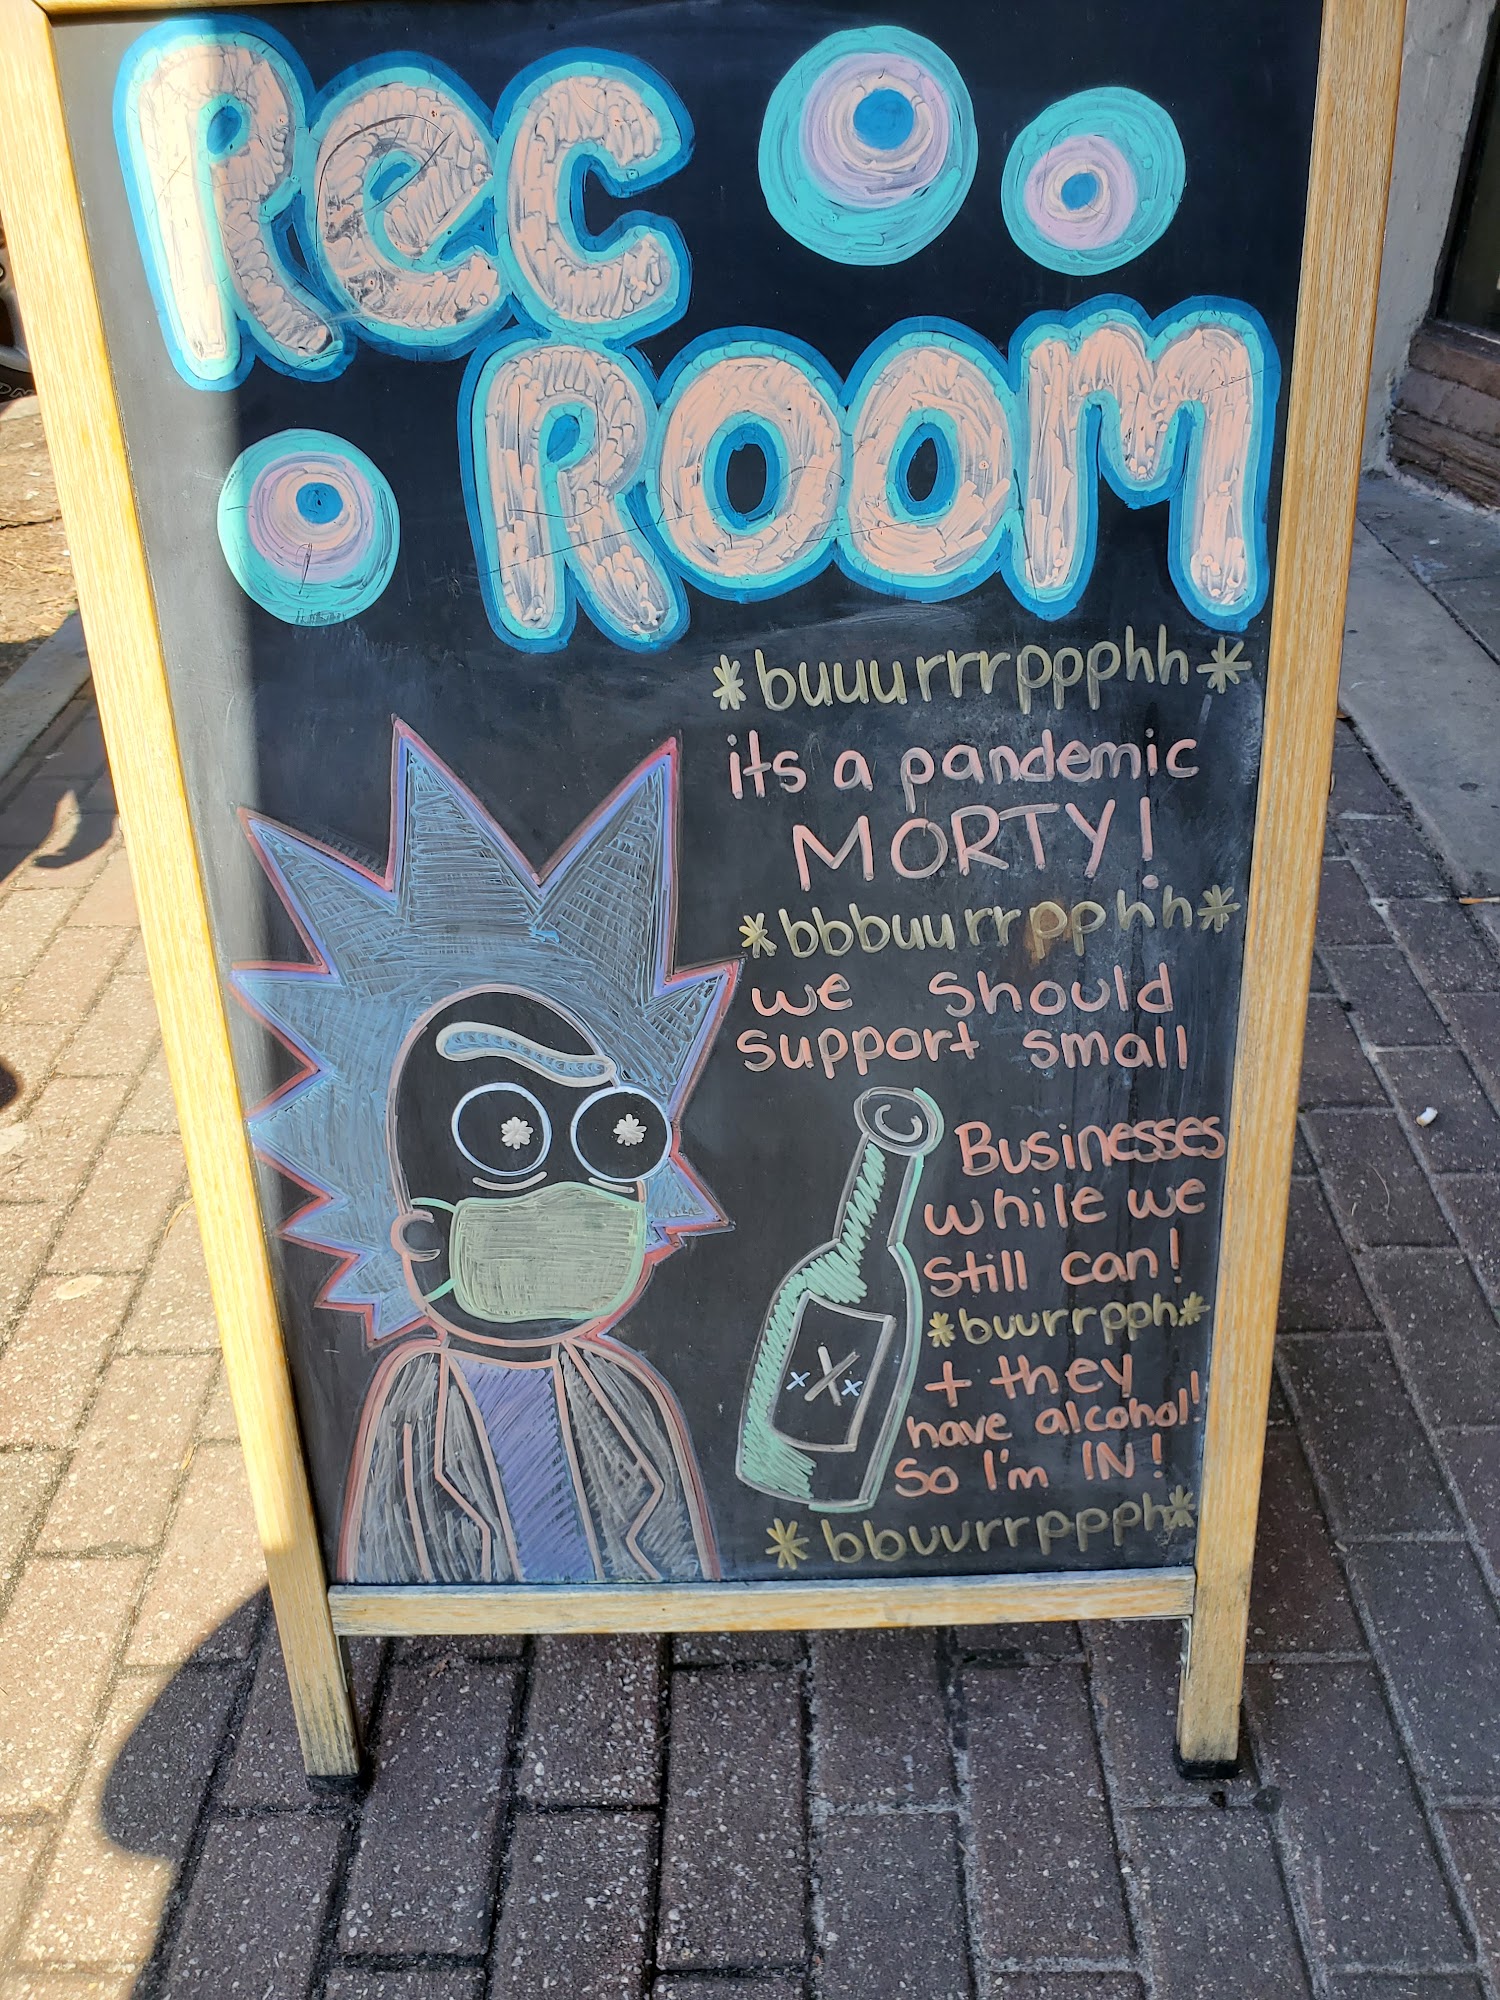 Rec
Room
*buuurrrppphh*
its a pandemic
MORTY!
*bbbuurrpphh*
we should
support small
Businesses
while we
still can!
*buurrpph*
+ they
have alcohol!
So I'm IN!
*bbuurrpppph*
xXx